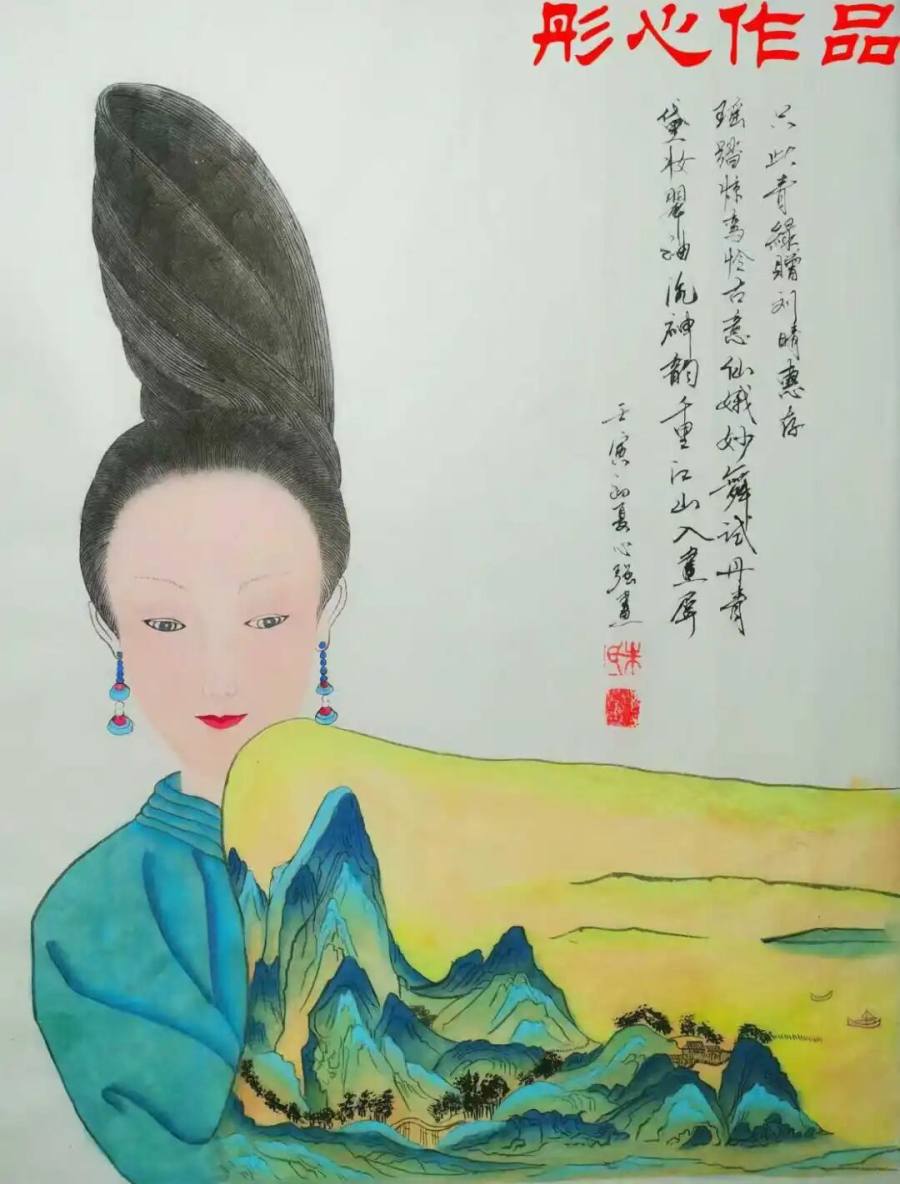 彤心作品
只此青绿赠刘晴惠存
瑶踏惊鸾怜古意仙娥妙舞试丹青
黛妆翠袖流神韵千里江山入画屏
壬寅初夏心强画